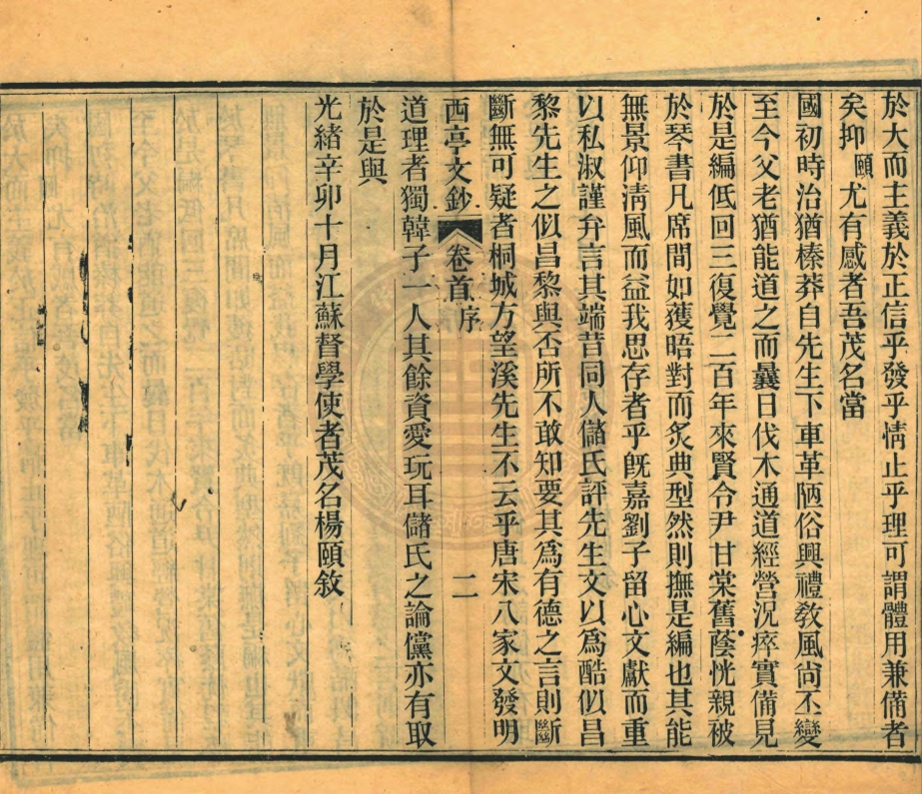 於大而主義於正信乎發乎情止乎理可謂體用兼備者
矣抑頤尤有感者吾茂名當
國初時治猶榛莽自先生下車革陋俗興禮教風尙丕變
至今父老猶能道之而曩日伐木通道經營況瘁實備見
於是編低回三復覺二百年來賢令尹甘棠舊蔭恍親被
於琴書几席間如獲晤對而炙典型然則撫是編也其能
無景仰淸風而益我思存者乎旣嘉劉子留心文獻而重
以私淑謹弁言其端昔同人儲氏評先生文以爲酷似昌
黎先生之似昌黎與否所不敢知要其爲有德之言則斷
斷無可疑者桐城方望溪先生不云乎唐宋八家文發明
西亭文鈔 卷首 序 二
道理者獨韓子一人其餘資愛玩耳儲氏之論儻亦有取
於是與
光緒辛卯十月江蘇督學使者茂名楊頤敘